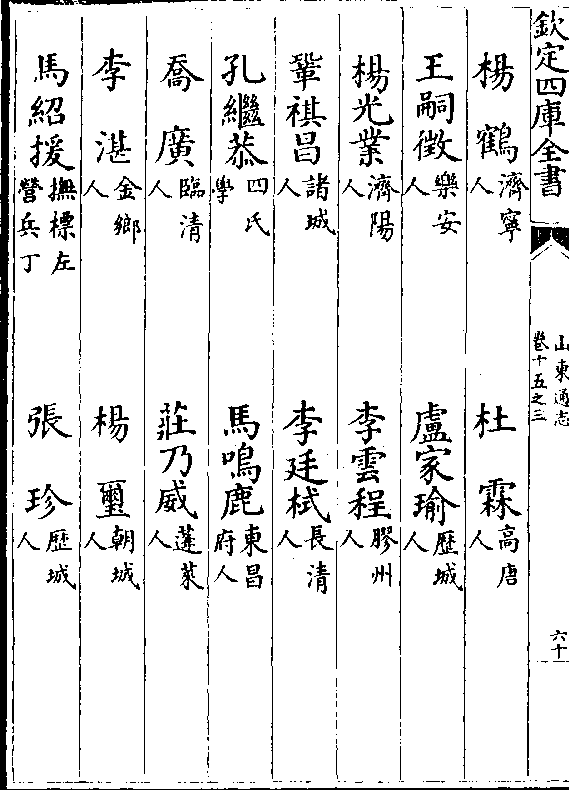 欽定四庫全書
山東通志
卷十五之三
六十
楊鶴濟寧人 杜霖高唐人
王嗣徴樂安人 盧家瑜歷城人
楊光業濟陽人 李雲程膠州人
鞏祺昌諸城人 李廷栻長清人
孔繼㳟四氏學 馬鳴鹿東昌府人
喬廣臨清人 莊乃威蓬萊人
李湛金鄉人 楊璽朝城人
馬紹援撫標左營兵丁 張珍歷城人